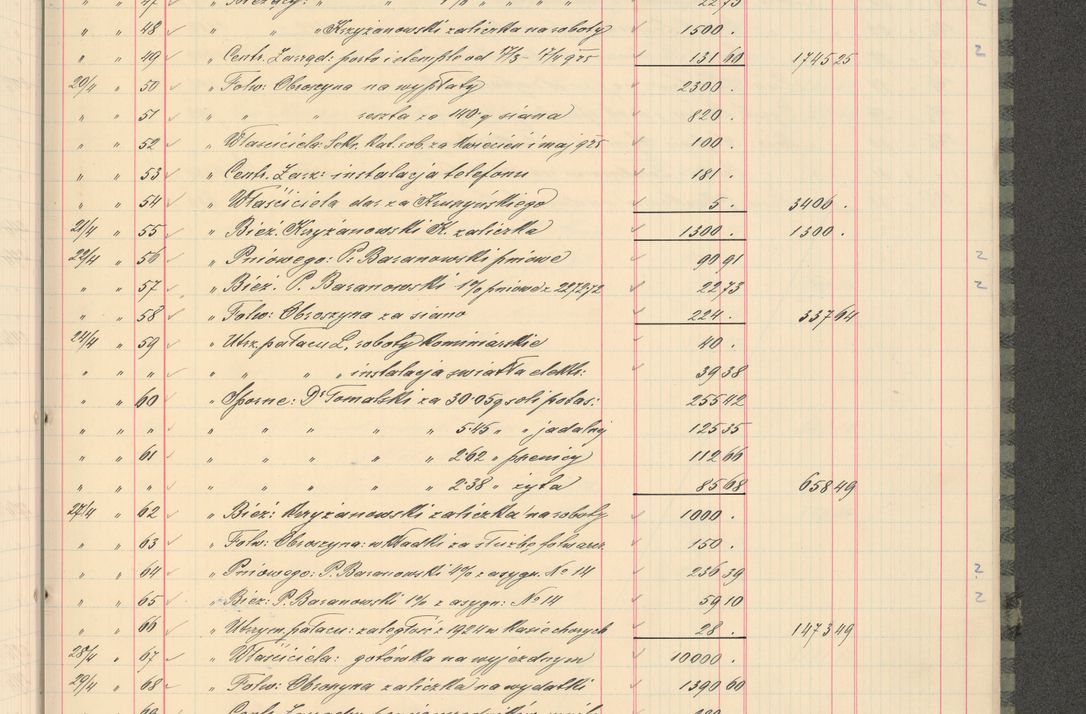 " " 48 " " " Krzyżanowski zaliczka na roboty 1500 .
" " 49 " Centr. Zarząd: porto i stemple od 17/3 - 17/4 925 131 60 1745 25 2
20/4 " 50 " Folw: Obroszyna na wypłaty 2300 .
" " 51 " " " reszta za 140 q siana 820 .
" " 52 " Właściciela: Sekr. Kat. rob. za kwiecień i maj 925 100 .
" " 53 " Centr. Zarz: instalacja telefonu 181 .
" " 54 " Właściciela dar za 5 . 3406 .
21/4 " 55 " Bież. Krzyżanowski K. zaliczka 1300 . 1300 .
22/4 " 56 " Pniowego: P. Baranowski pniowe 90 91 2
" " 57 " Bież. P. Baranowski 1% pniowe z 2272,72 22 73 2
" " 58 " Folw: Obroszyna za siano 224 . 337 64
24/4 " 59 " Utrz. pałacu L. roboty kominiarskie 40 .
" " " " " " " instalacja światła elektr: 39 38
" " 60 " Sporne: Dr Tomalski za 30.05 q soli potas: 255 42
" " " " " " " " 5.45 " " jadalnej 125 35
" " 61 " " " " " 2.62 " pszenicy 112 66
" " " " " " " " 2.38 " żyta 85 68 658 49
27/4 " 62 " Bież: Krzyżanowski zaliczka na roboty 1000 .
" " 63 " Folw: Obroszyna: wkładki za służbę folwarcz. 150 .
" " 64 " Pniowego: P. Baranowski 4% z asygn. No 14 236 39 2
" " 65 " Bież: P. Baranowski 1% z asygn: No 14 59 10 2
" " 66 " Utrzym. pałacu: zaległość z 1924 w kasie chorych 28 . 1473 49
28/4 " 67 " Właściciela: gotówka na wyjezdnym 10000 .
29/4 " 68 " Folw: Obroszyna zaliczka na wydatki 1390 60